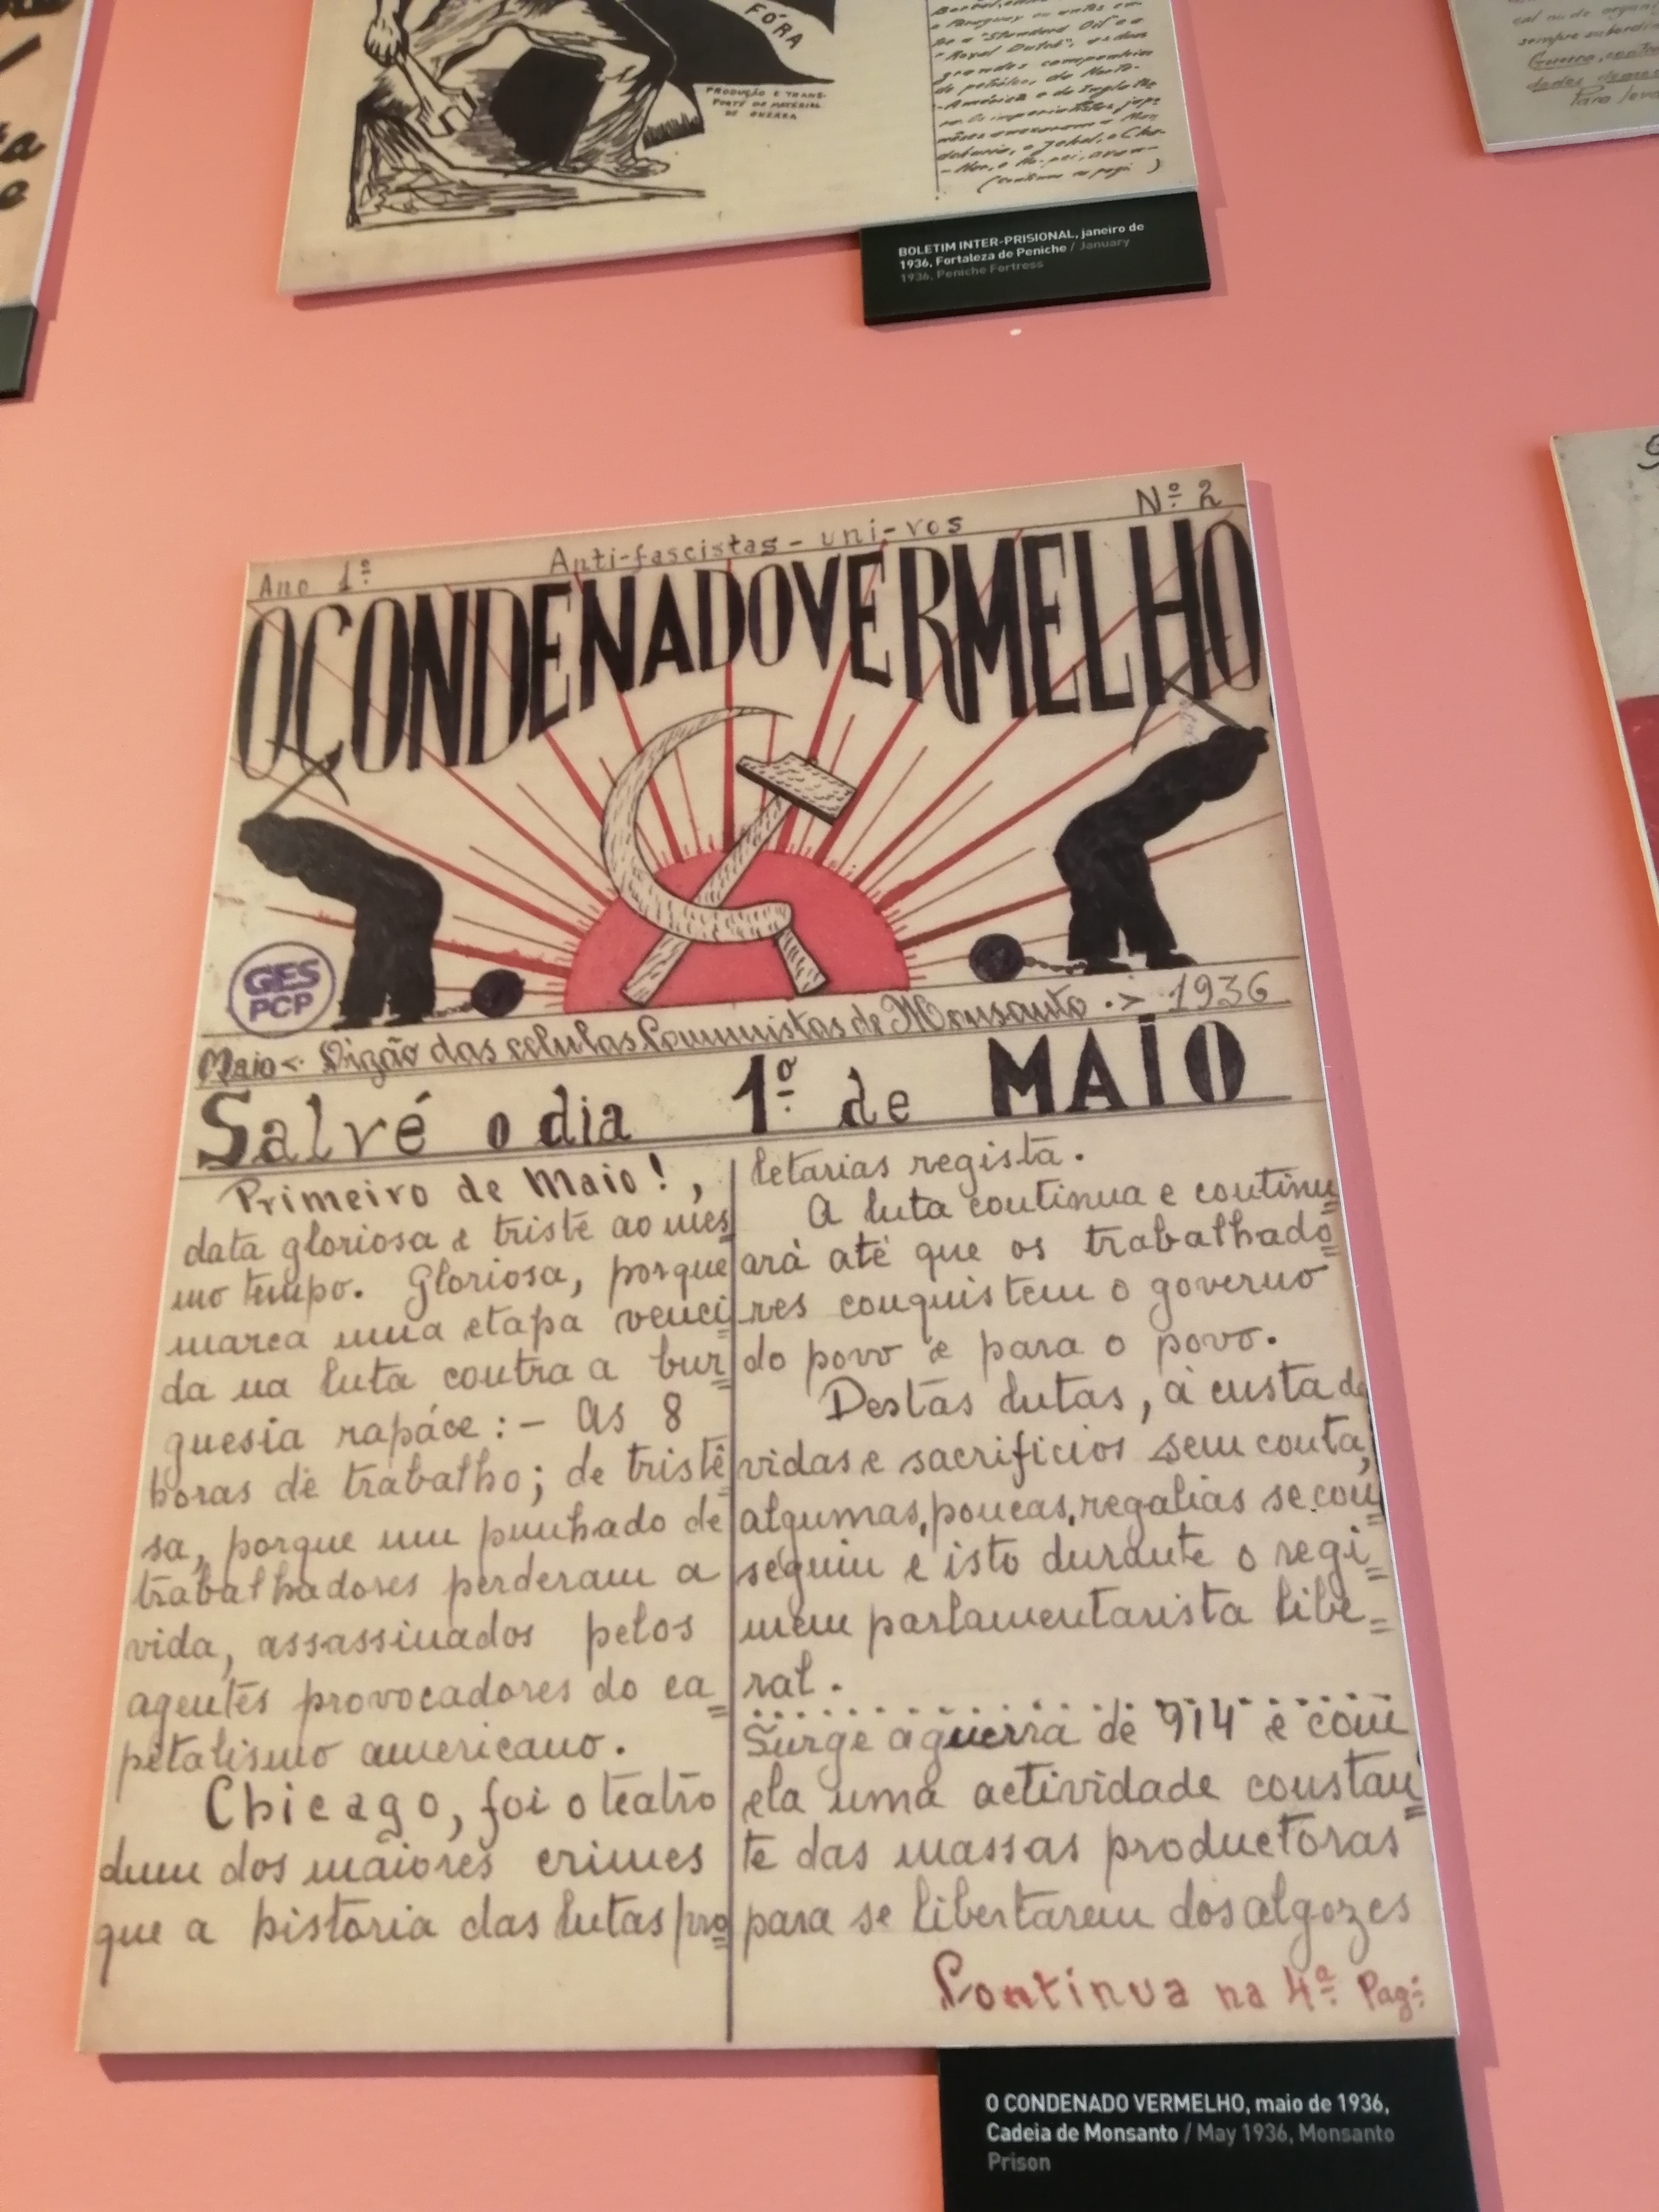 FÓRA
PRODUÇÃO E TRANS-
PORTE DE MATERIAL
DE GUERRA
o Paraguay ou antes en-
tre a "Standard Oil" e a
"Royal Dutch", as duas
grandes companhias
de petróleo, da Norte-
-América e da Ingla
ra. Os imperialistas japo
(Continua na pagi )
BOLETIM INTER-PRISIONAL, janeiro de
1936, Fortaleza de Peniche / January
1936, Peniche Fortress
cal ou de organi
sempre subordin
Guerra, contra
dades
Para leva
Ano 1º
Anti-fascistas - uni-vos
Nº 2
O CONDENADO VERMELHO
GES
PCP
Maio <. Dizão das celulas Comunistas de Monsanto .> 1936
Salvé o dia 1º de MAIO
Primeiro de Maio!,
data gloriosa e triste ao mes=
mo tempo. Gloriosa, porque
marca uma etapa venci=
da na luta contra a bur=
guesia rapáce :- As 8
horas de trabalho; de tristê=
sa, porque um punhado de
trabalhadores perderam a
vida, assassinados pelos
agentes provocadores do ca=
pitalismo americano.
Chicago, foi o teatro
dum dos maiores crimes
que a historia das lutas pro=
letarias regista.
A luta continua e continu=
ará até que os trabalhado=
res conquistem o governo
do povo e para o povo.
Destas lutas, á custa de
vidas e sacrificios sem conta,
algumas, poucas, regalias se con=
seguiu e isto durante o regi=
mem parlamentarista libe=
ral.
Surge a guerra de 914 e com
ela uma actividade constan=
te das massas productoras
para se libertarem dos algozes
Continua na 4ª Pag:
O CONDENADO VERMELHO, maio de 1936,
Cadeia de Monsanto / May 1936, Monsanto
Prison